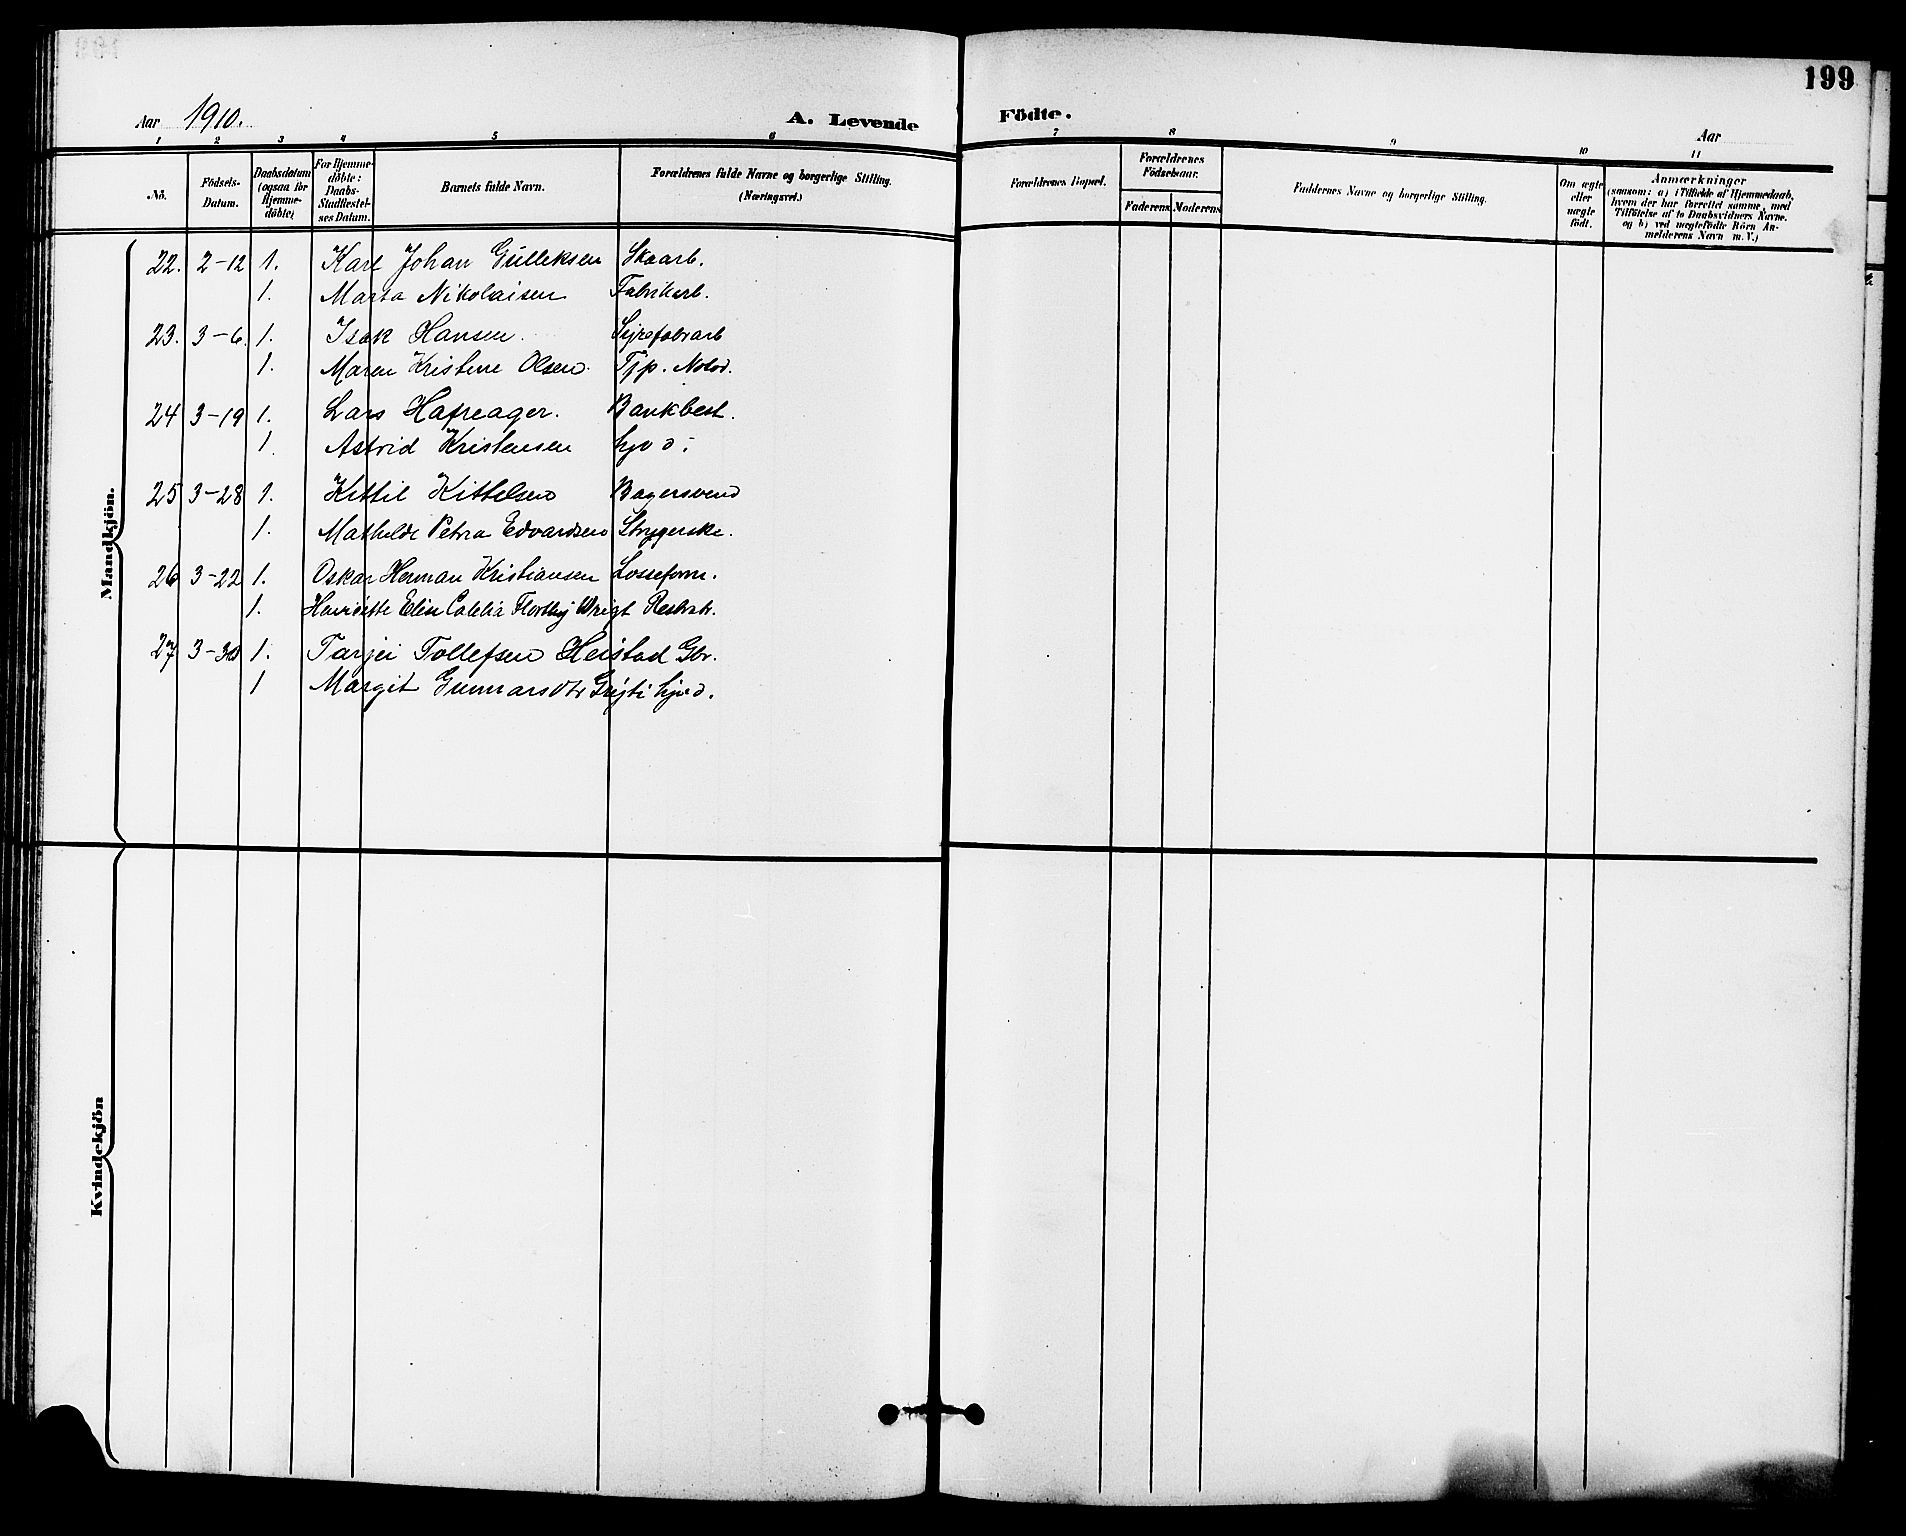 199
Aar 1910.
A. Levende Födte.
Aar
1 2 3 4 5 6 7 8 9 10 11
No.
Födsels-Datum.
Daabsdatum (ogsaa for Hjemme-döbte)
For Hjemme-döbte: Daabs-Stadfæstel-ses Datum.
Barnets fulde Navn.
Forældrenes fulde Navne og borgerlige Stilling. (Næringsvei.)
Forældrenes Bopæl.
Forældrenes Födselsaar.
Faderens Moderens
Faddernes Navne og borgerlige Stilling.
Om ægte eller uægte födt.
Anmærkninger (saasom: a) i Tilfælde af Hjemmedaab, hvem der har forrettet samme, med Tilföielse af to Daabsvidners Navne. og b) ved uægtefödte Börn An-melderens Navn m. V.)
Mandkjön.
22. 2-12 1. Karl Johan Gulleksen Skoarb.
1. Marta Nikolaisen Fabrikarb.
23. 3-6. 1. Isak Hansen.
1. Maren Kristine Olsen. Tjp. Notod.
24 3-19 1. Lars Hafreager. Bankbest.
1. Astrid Kristensen hjvd.
25 3-28 1. Kittil Kittelsen Bagersvend
1. Mathilde Petra Edvardsen Strygerske.
26 3-22 1. Oskar Herman Kristiansen Losseform.
1. Henriette Elin Wrigt
27 3-30 1. Tarjei Tollefsen Heistad Gbr.
1 Margit Gunnarsdtr hjvd.
Kvindekjön